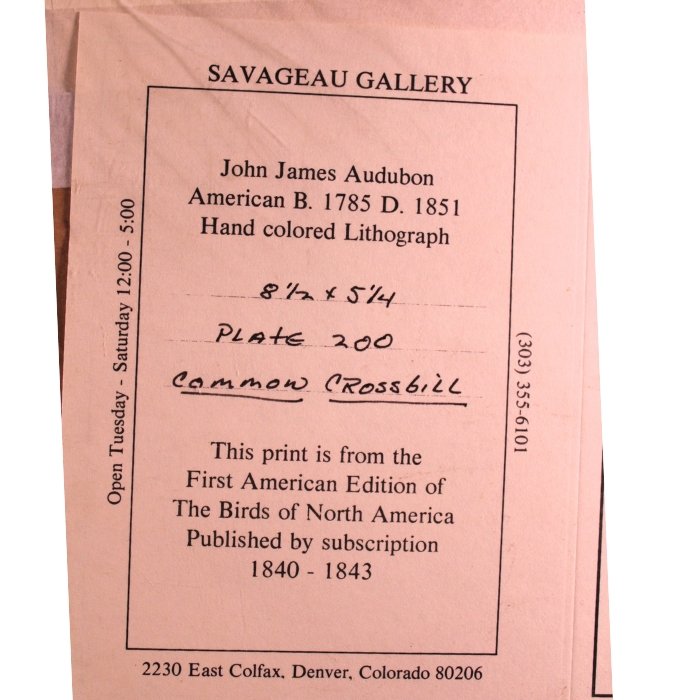 SAVAGEAU GALLERY
John James Audubon
American B. 1785 D. 1851
Hand colored Lithograph
8 1/2 x 5 1/4
PLATE 200
COMMON CROSSBILL
This print is from the
First American Edition of
The Birds of North America
Published by subscription
1840 - 1843
2230 East Colfax, Denver, Colorado 80206
Open Tuesday - Saturday 12:00 - 5:00
(303) 355-6101